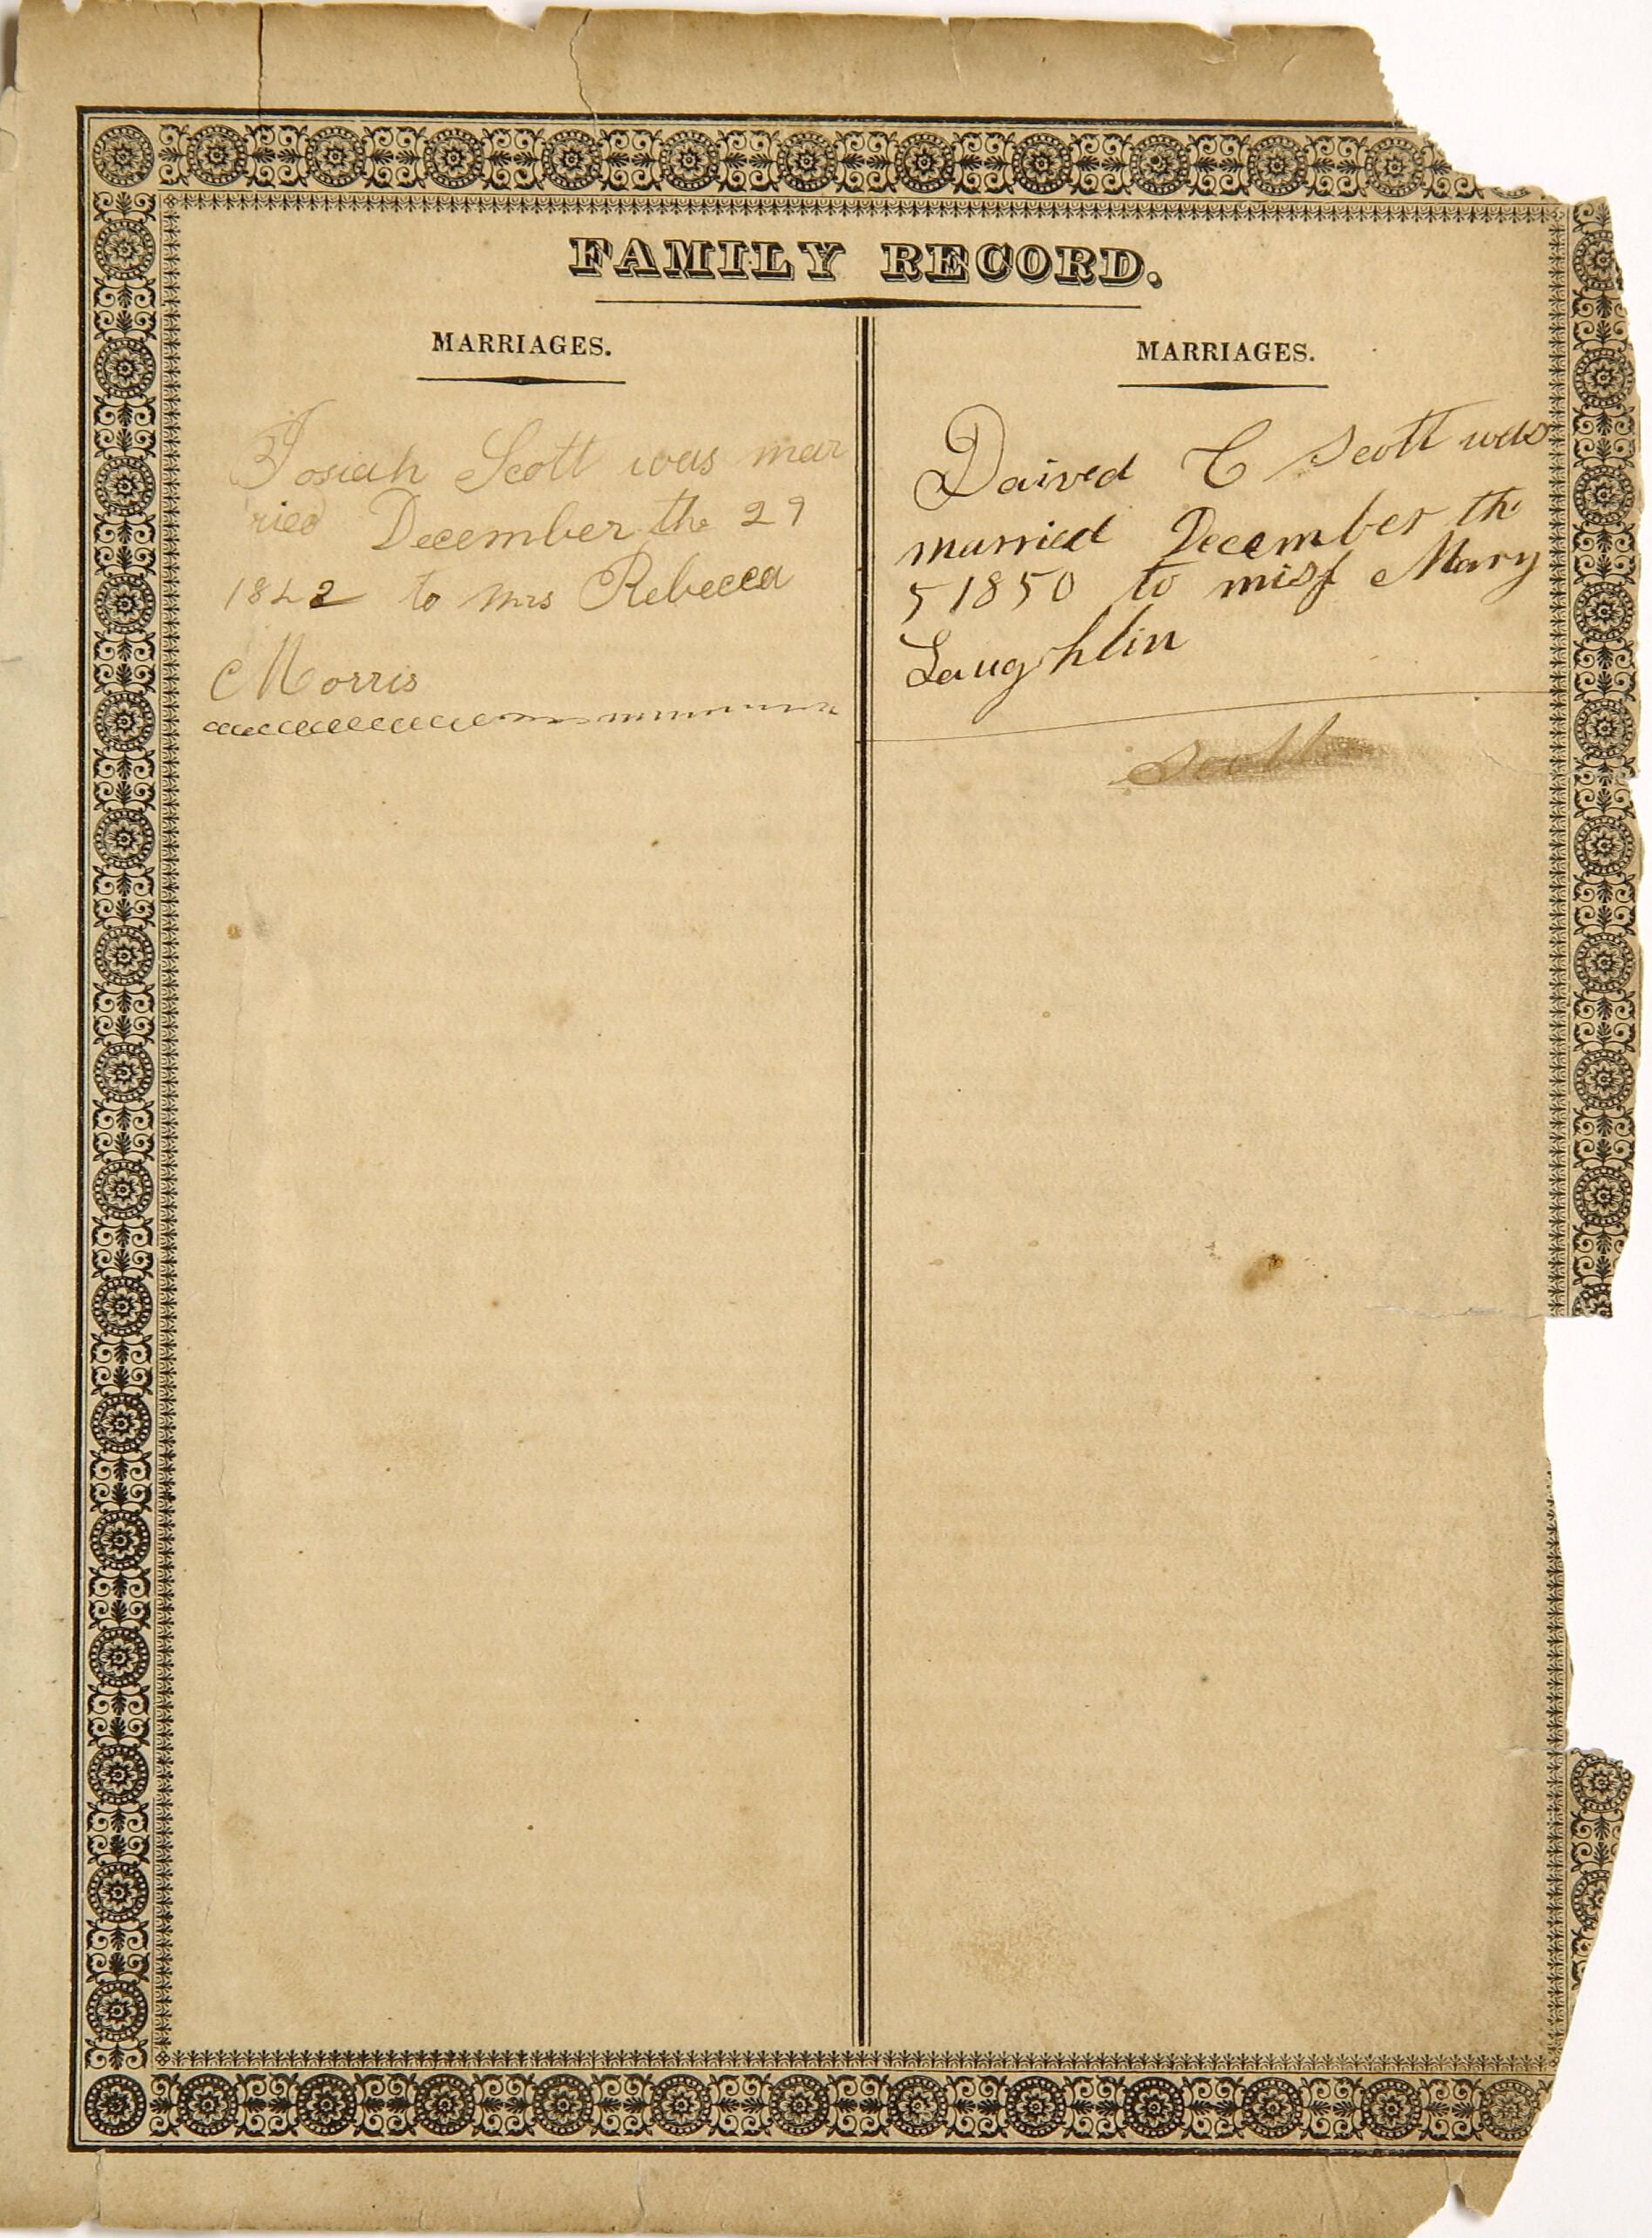 FAMILY RECORD.
MARRIAGES.
Josiah Scott was mar
ried December the 29
1842 to mrs Rebecca
Morris
MARRIAGES.
Daived C Scott was
married December the
5 1850 to miss Mary
Laughlin
Scott